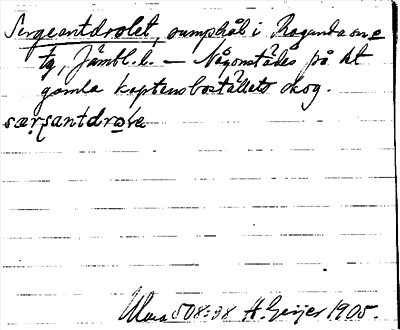 Sergeantdrolet, sumphål i Ragunda sn o
tg, Jämtl. l. — Någonstädes på det
gamla kaptensboställets skog.
særʂantdrɷlæ
Ulma 508:38 H. Geijer 1905.